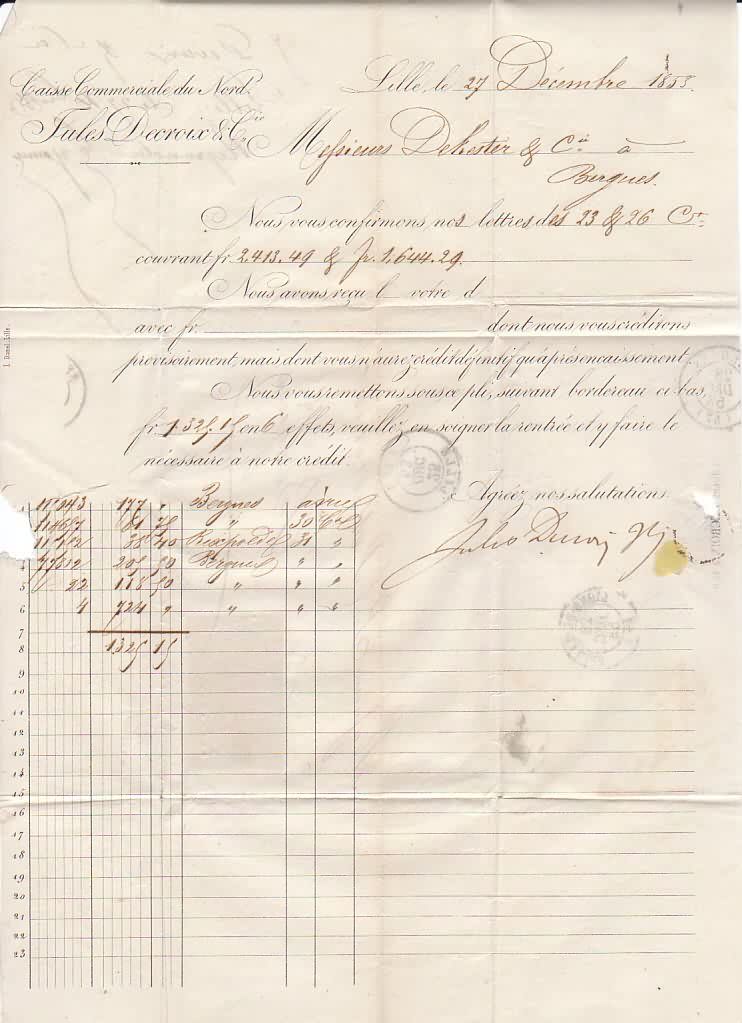 Caisse Commerciale du Nord.
Lille, le 27 Décembre 1853.
Jules Decroix & Cie
Messieurs DeKester & Cie à
Bergues.
Nous vous confirmons, nos lettres des 23 & 26 Ct
couvrant fr. 2,413.49 & fr. 1,644.29
Nous avons reçu l votre d
avec fr. dont nous vous créditons
provisoirement, mais dont vous n'aurez crédit définitif qu'après encaissement.
Nous vous remettons sous ce pli, suivant bordereau ci-bas,
fr. 1325.15 en 6 effets, veuillez en soigner la rentrée et y faire le
nécessaire à notre crédit.
Agréez nos salutations.
Jules Decroix
177 " Bergues à vue
61 75 " 30
38 40 31 "
4 205 50 Bergues " "
5 22 118 50 " " "
6 4 724 " " " "
7
8 1325 15
9
10
11
12
13
14
15
16
17
18
19
20
21
22
23
L. Danel, Lille.